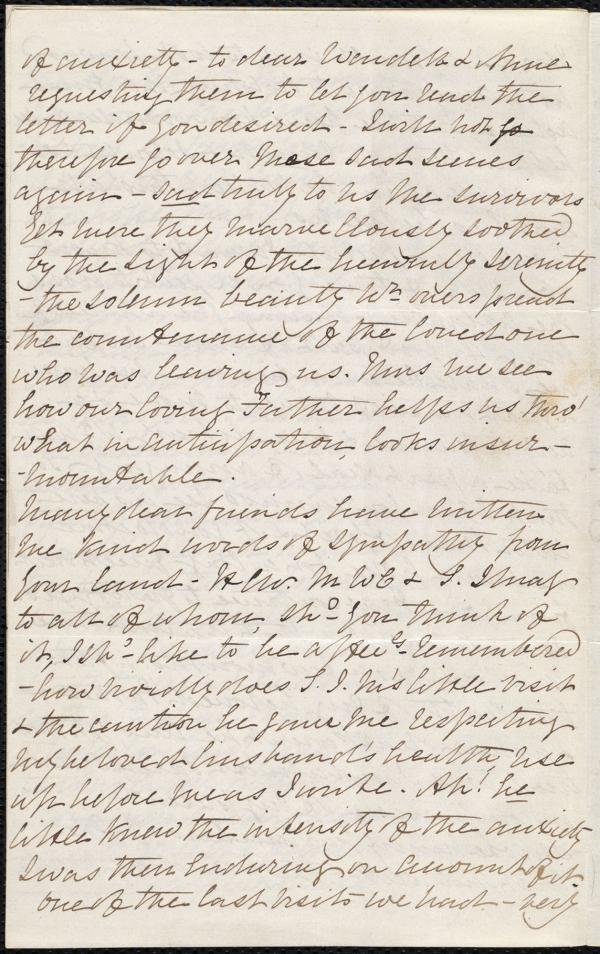 of anxiety - to dear Wendell & Anne
requesting them to let you read the
letter if you desired - I will not go
therefore go over these sad scenes
again - sad truly to us the survivors
Yet were they marvellously soothed
by the sight of the heavenly serenity
- the solemn beauty wh overspread
the countenance of the loved one
who was leaving us. Thus we see
how our loving Father helps us thro'
what in anticipation, looks insur-
-mountable.
Many dear friends have written
me kind words of sympathy from
your land - H C W. M W C & S. J. May
to all of whom, shd you think of
it, I shd like to be affecly remembered
- how vividly does S. J. M's little visit
& the caution he gave me respecting
my beloved husband's health, rise
up before me as I write. Ah! he
little knew the intensity of the anxiety
I was then enduring on account of it
one of the last visits we had - very